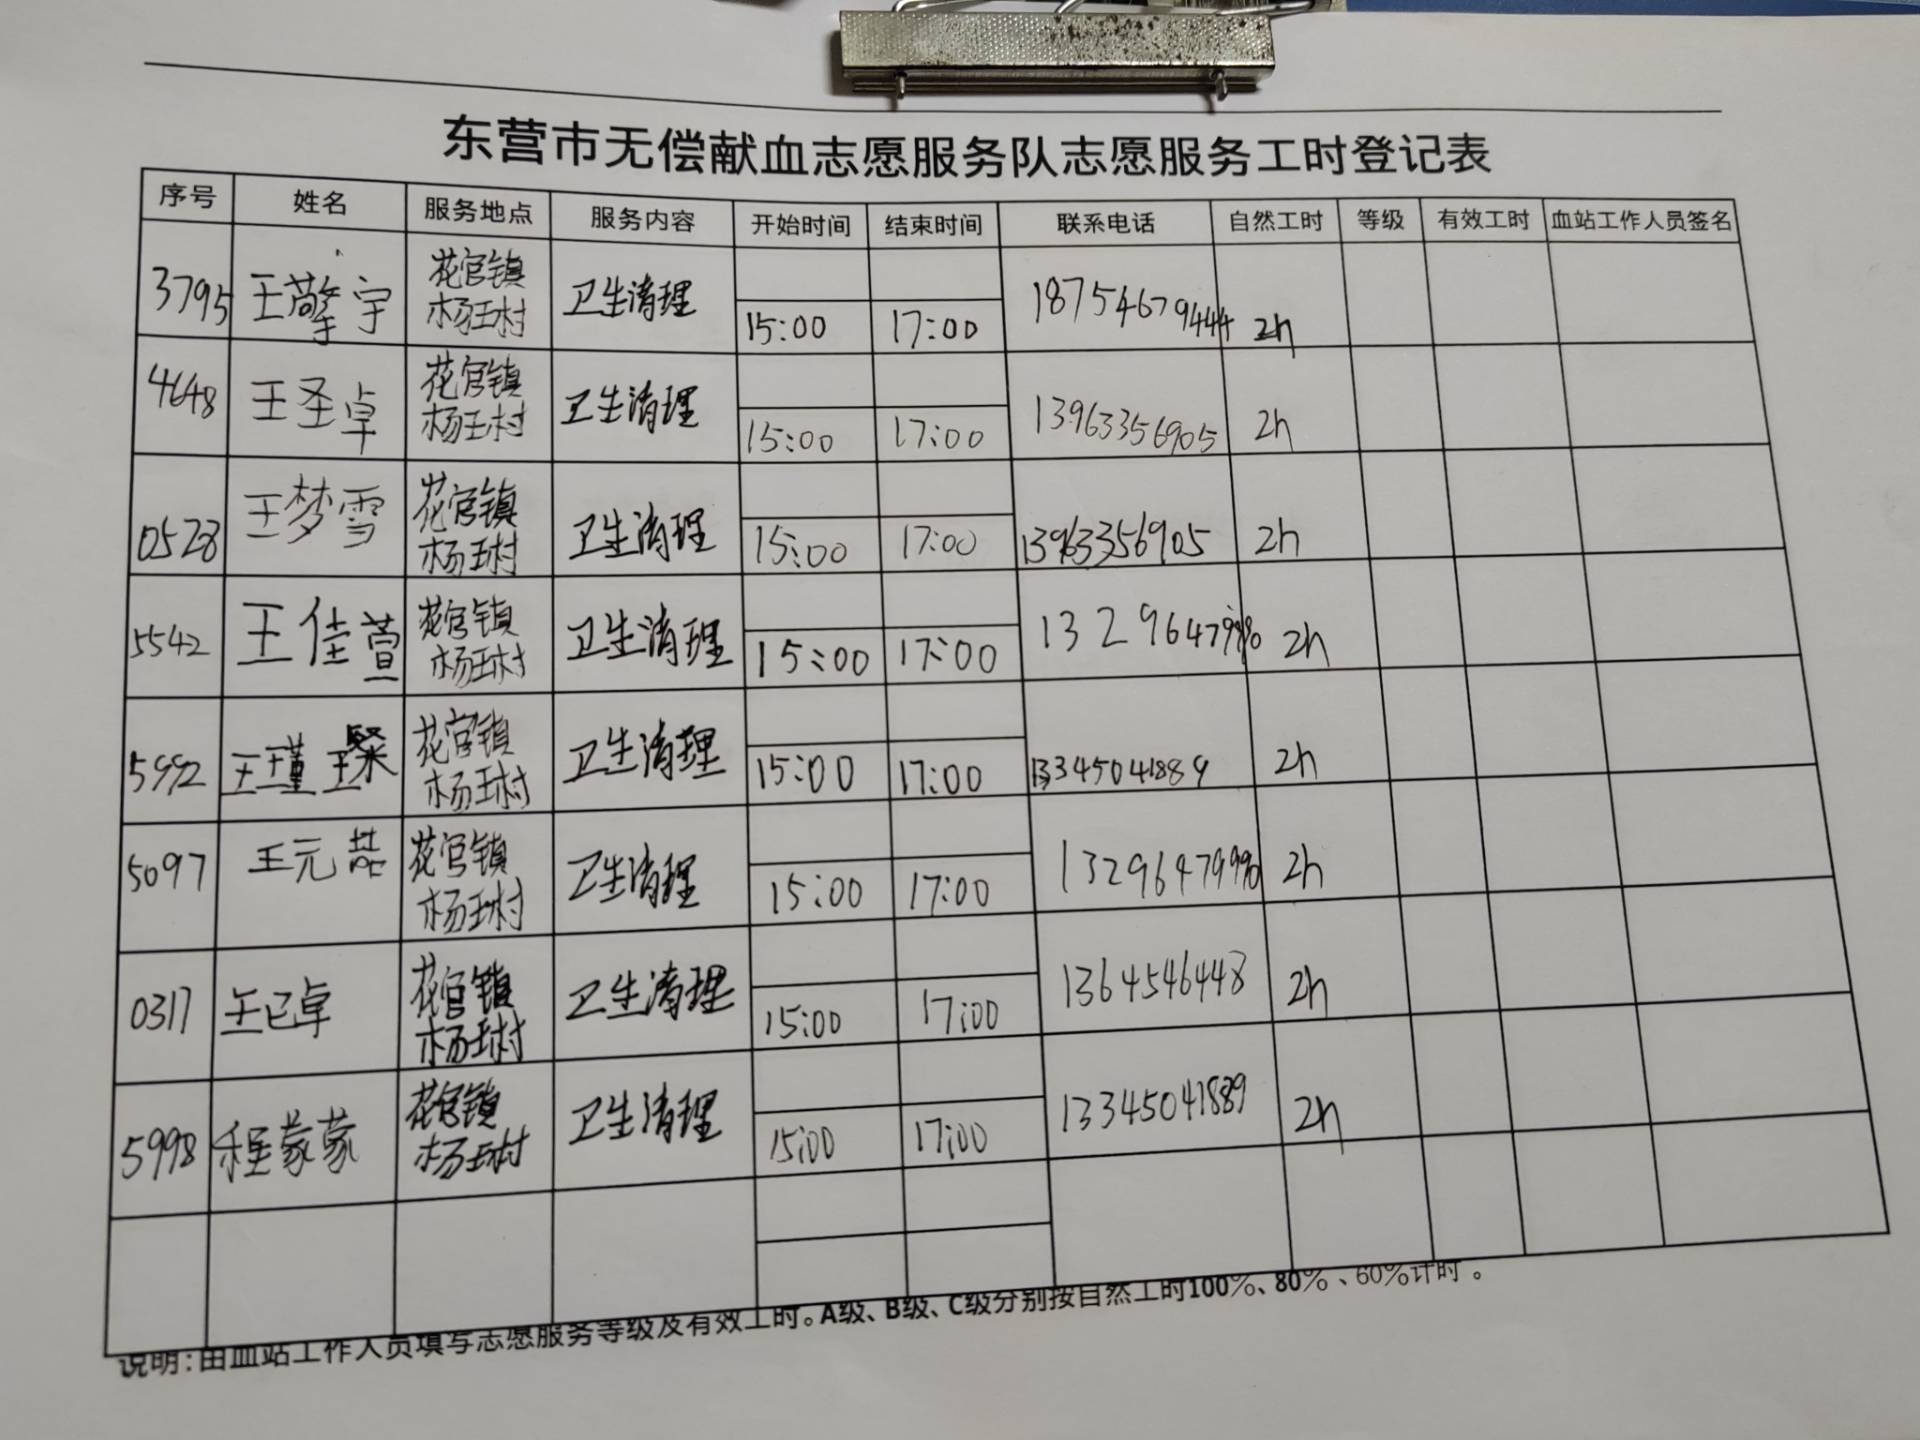 东营市无偿献血志愿服务队志愿服务工时登记表
序号 姓名 服务地点 服务内容 开始时间 结束时间 联系电话 自然工时 等级 有效工时 血站工作人员签名
3795 王擎宇 花官镇杨王村 卫生清理 15:00 17:00 18754679444 2h
4648 王圣卓 花官镇杨王村 卫生清理 15:00 17:00 13963356905 2h
0528 王梦雪 花官镇杨王村 卫生清理 15:00 17:00 13963356905 2h
5542 王佳萱 花官镇杨王村 卫生清理 15:00 17:00 13296479990 2h
5992 王瑾璨 花官镇杨王村 卫生清理 15:00 17:00 13345041889 2h
5097 王元喆 花官镇杨王村 卫生清理 15:00 17:00 13296479990 2h
0317 王已卓 花官镇杨王村 卫生清理 15:00 17:00 1364546448 2h
5998 程蒙蒙 花官镇杨王村 卫生清理 15:00 17:00 13345041889 2h
说明:由血站工作人员填写志愿服务等级及有效工时。A级、B级、C级分别按自然工时100%、80%、60%计时。